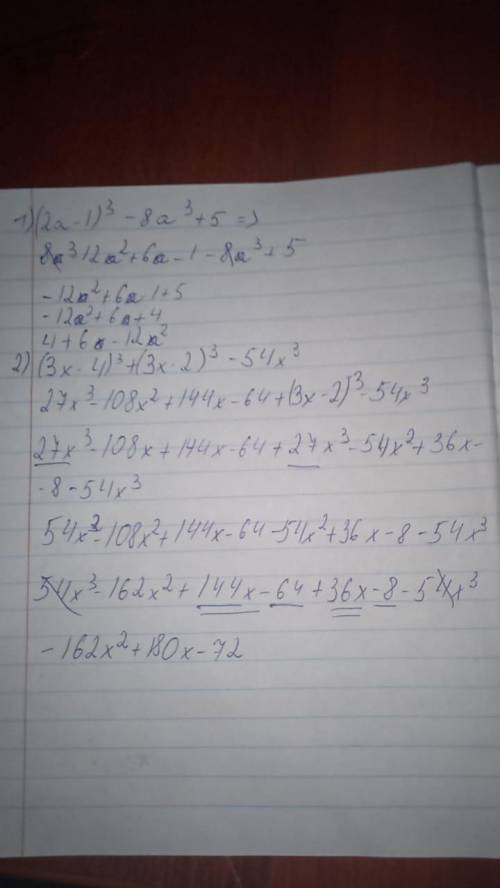 1) (2a-1)³ - 8a³ + 5 =>
8a³ 12a² + 6a - 1 - 8a³ + 5
-12a² + 6a 1 + 5
-12a² + 6a + 4
4 + 6a - 12a²
2) (3x - 4)³ + (3x - 2)³ - 54x³
27x³ - 108x² + 144x - 64 + (3x - 2)³ - 54x³
27x³ - 108x + 144x - 64 + 27x³ - 54x² + 36x -
- 8 - 54x³
54x² - 108x² + 144x - 64 - 54x² + 36x - 8 - 54x³
54x³ - 162x² + 144x - 64 + 36x - 8 - 54x³
- 162x² + 180x - 72